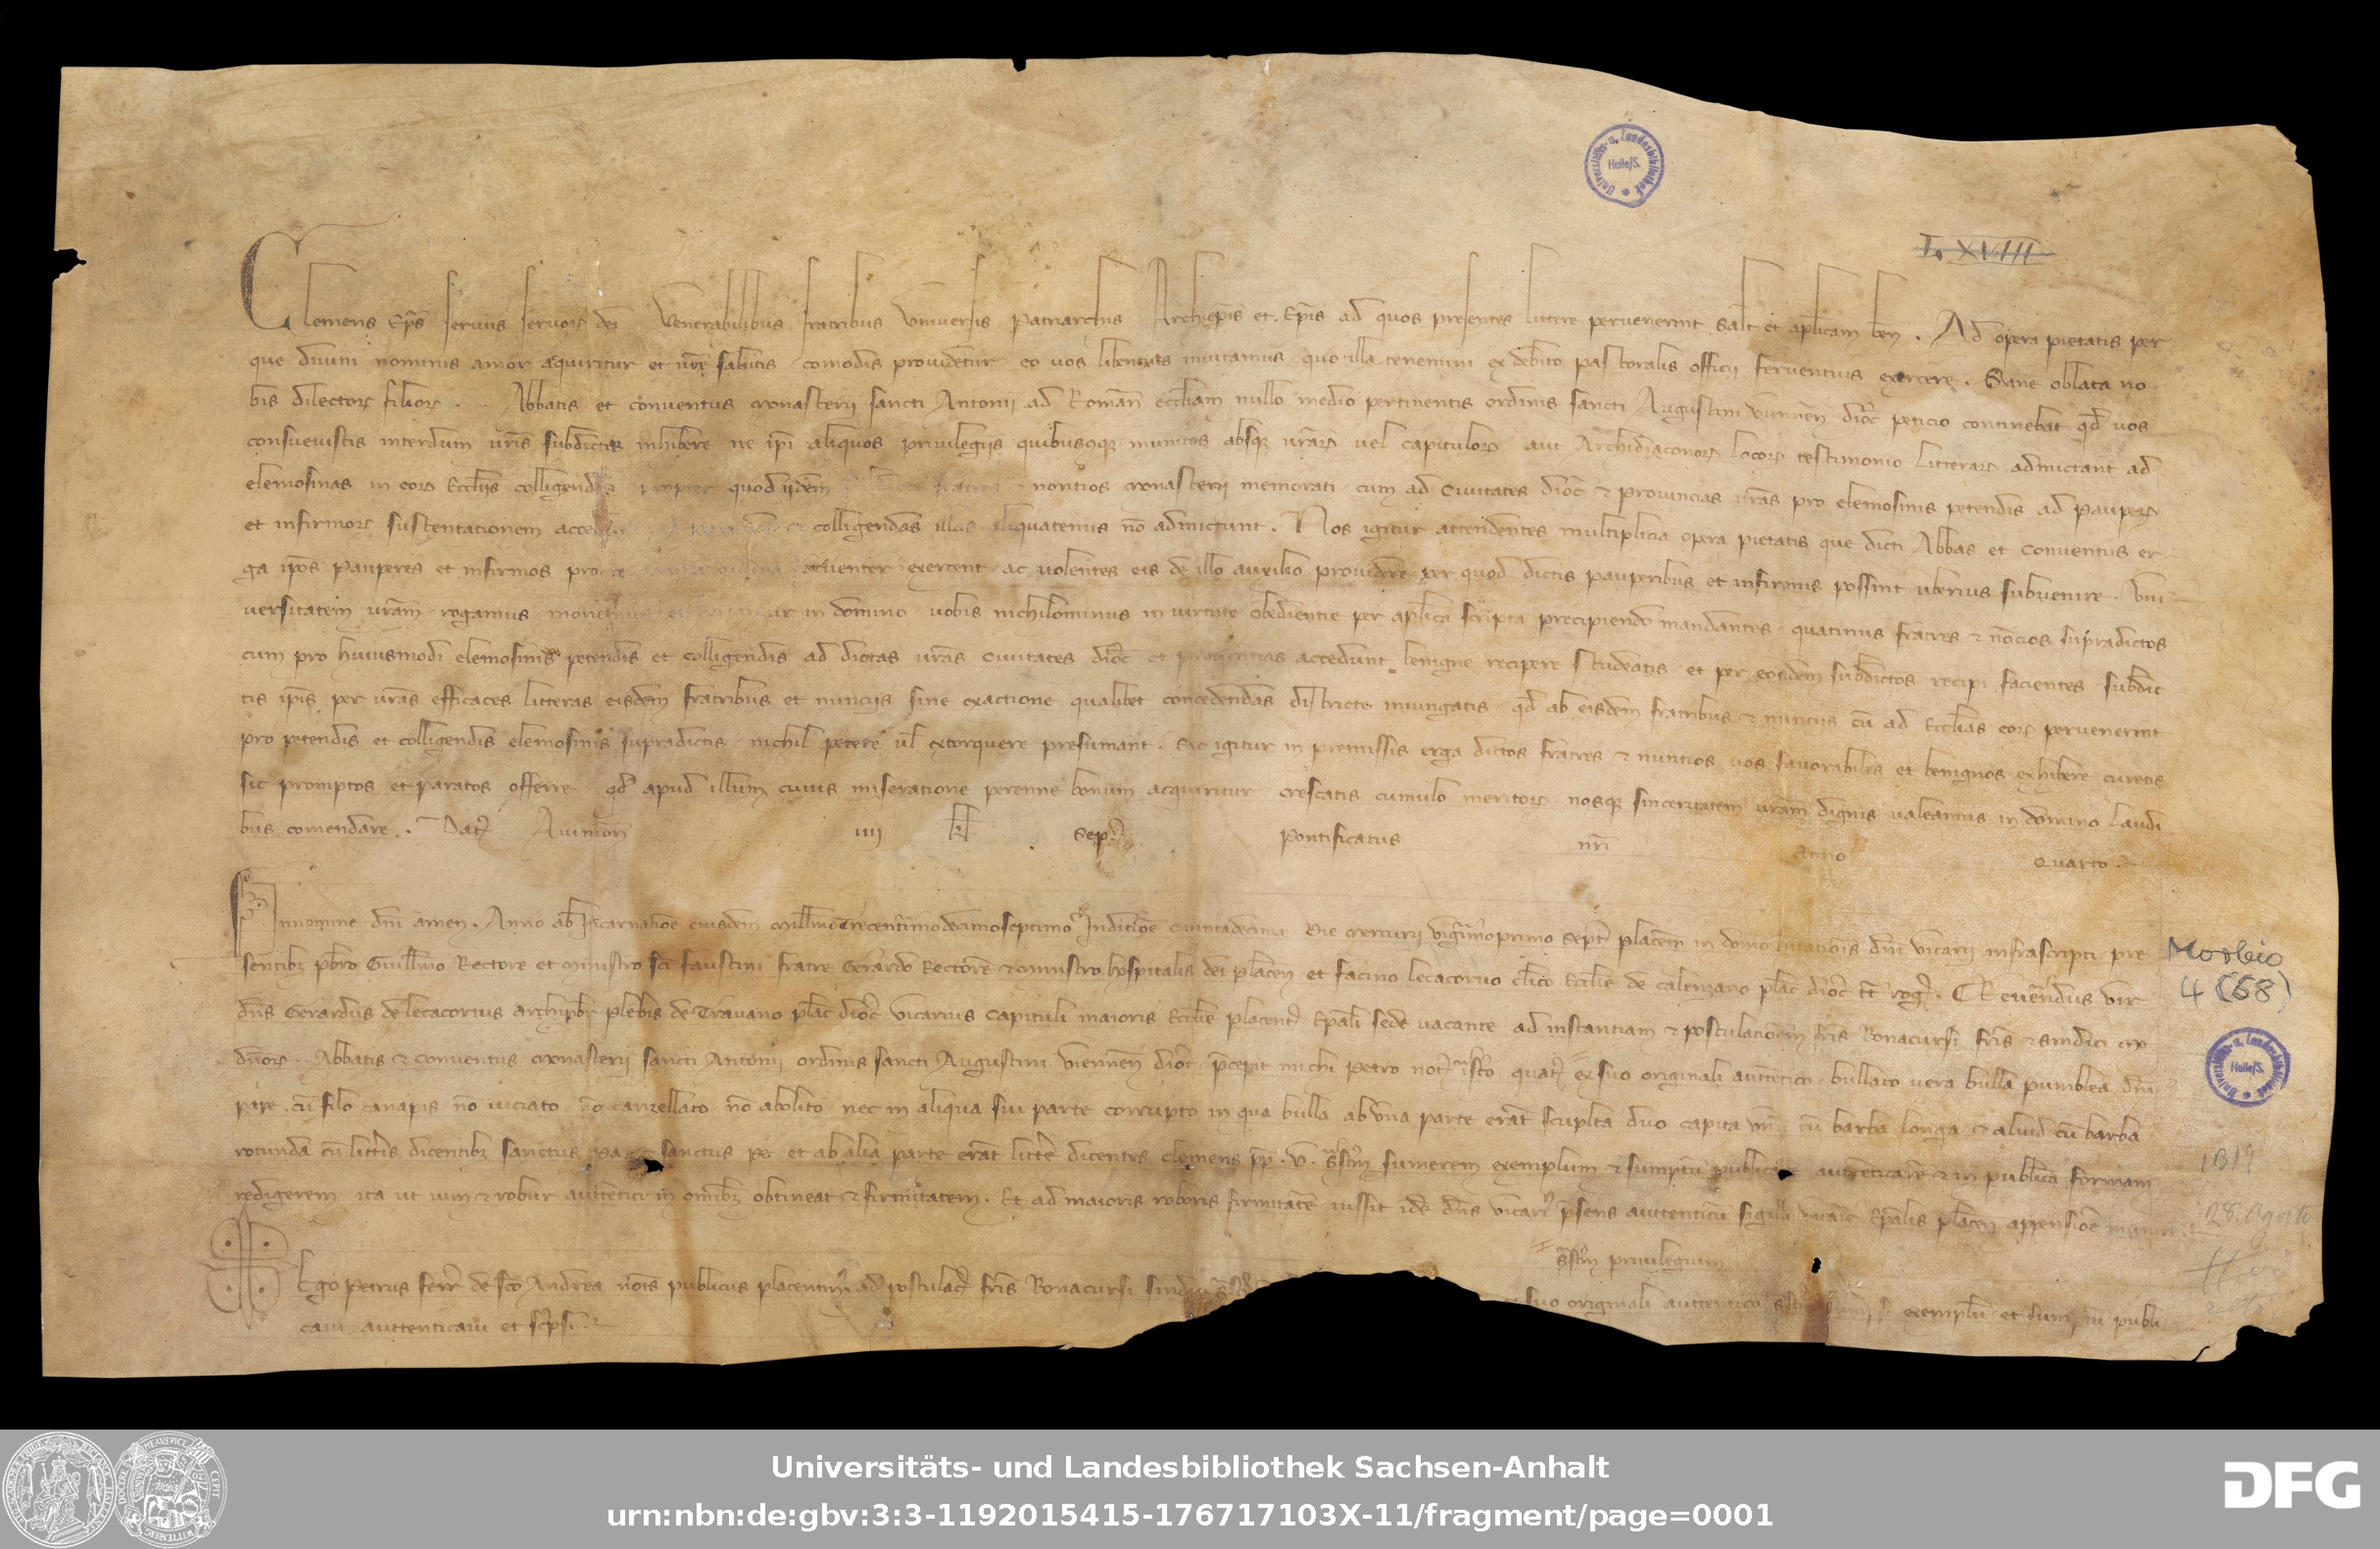 I. XVIII
Clemens Ep̄s servus servor dei Venerabilibus fratribus Universis Patriarchis Archiep̄is et Ep̄is ad quos presentes littere pervenerint salt et ap̄licam ben̄. Ad opera pietatis per
que divini nominis amor aquiritur et vr̄e salutis comodis providetur eo vos libentius invitamus quo illa tenemini ex debito pastoralis officii ferventius exercere. Sane oblata no
bis dilector filior .. Abbatis et conventus monasterii sancti Antonii ad Roman̄ eccl̄iam nullo medio pertinentis ordinis sancti Augustini Viennen̄ dioc̄ peticio continebat qd̄ vos
consuevistis interdum vr̄is subdictis inhibere ne ip̄i aliquos privilegiis quibuscq munitos absq vr̄ar vel capitulor aut Archidiaconor locor testimonio litterar admictant ad
elemosinas in eor Eccl̄iis colligendas propter quod iidem fratres nontios monasterii memorati cum ad Civitates dioc̄ et provincias vr̄as pro elemosinis petendis ad pauper
et infirmor sustentationem colligendas illas aliquatenus nō admictunt. Nos igitur attendentes multiplicia opera pietatis que dicti Abbas et conventus er
ga ip̄os pauperes et infirmos exercent ac volentes eis de illo auxilio providere per quod dictis pauperibus et infirmis possint uberius subvenire. Uni
versitatem vr̄am rogamus in domino vobis nichilominus in virtute obedientie per ap̄lica scripta precipiendo mandantes quatinus fratres et nōcios supradictos
cum pro huiusmodi elemosinis petendis et colligendis ad dictas vr̄as civitates dioc̄ et provintias accedunt benigne recipere studeatis et per eosdem subdictos recipi facientes subdic
tis ip̄is per vr̄as efficaces litteras eisdem fratribus et nunciis sine exactione qualibet concedendas districte iniungatis qd̄ ab eisdem fratribus et nunciis cū ad Eccl̄ias eor pervenerint
pro petendis et colligendis elemosinis supradictis nichil petere vl̄ extorquere presumant. Sic igitur in premissis erga dictos fratres et nuntios vos favorabiles et benignos exhibere curetis
sic promptos et paratos offerre qd̄ apud illum cuius miseratione perenne bonum acquiritur crescatis cumulo meritor nosq sinceritatem vr̄am dignis valeamus in domino laudi
bus comendare. Dat Avinion̄ iiii kl Sept Pontificatus nr̄i Anno Quarto.
In nomine dn̄i amen. Anno ab Incarnatiōe eiusdem Mill̄mo Trecentimodecimoseptimo Indictiōe Quintadecima Die Mercurii vigesimoprimo Sept placen̄ in domo dn̄i vicarii infrascripti pre
sentibz pbr̄o Guill̄mo Rectore et ministro sc̄i faustini fratre Gerardo Rectore et ministro hospitalis dei placen̄ et facino lecacorvo cl̄ico Eccl̄ie de calenzano plac̄ dioc̄ tt̄ rog. Reverendus vir
dn̄s Gerardus de lecacorvus archipb̄r plebis de Travano plac̄ dioc̄ vicarius capituli maioris Eccl̄ie placent̄ Ep̄ali sede vacante ad instantiam et postulationem fr̄is Bonacursi fr̄is et sindici
dn̄or .. Abbatis et conventus monasterii sancti Antonii ordinis sancti Augustini Viennen̄ dioc̄ p̄cepit michi Petro not̄ quat̄ ex suo originali autentico bullato vera bulla pumblea dn̄i
pape cū filo canapis nō viciato nō canzellato nō abolito nec in aliqua sui parte corrupto in qua bulla ab una parte erāt sculpta duo capita unū cū barba longa et aliud cū barba
rotunda cū litt̄is dicentibz sanctus Pa sanctus Pe et ab alia parte erāt litt̄e dicentes clemens pp̄ .V. sumerem exemplum et sumptū publicare autenticare et in publicā formam
redigerem ita ut vim et robur autentici in omnibz obtineat et firmitatem. Et ad maioris roboris firmitatē iussit idē dn̄s vicari p̄sens autenticū sigilli Ep̄alis placen̄ appensiōe
privilegium
Ego Petrus ferr̄ de sc̄o Andrea not̄s publicus placentin ad postulac̄ fr̄is Bonacursi suo originali autentico exemplū et publi
cavi autenticavi et sc̄psi.
Morbio
4 (68)
1317
28. Agosto
Universitäts- u. Landesbibliothek Halle/S.
Universitäts- u. Landesbibliothek Halle/S.
Universitäts- und Landesbibliothek Sachsen-Anhalt
urn:nbn:de:gbv:3:3-1192015415-176717103X-11/fragment/page=0001
DFG